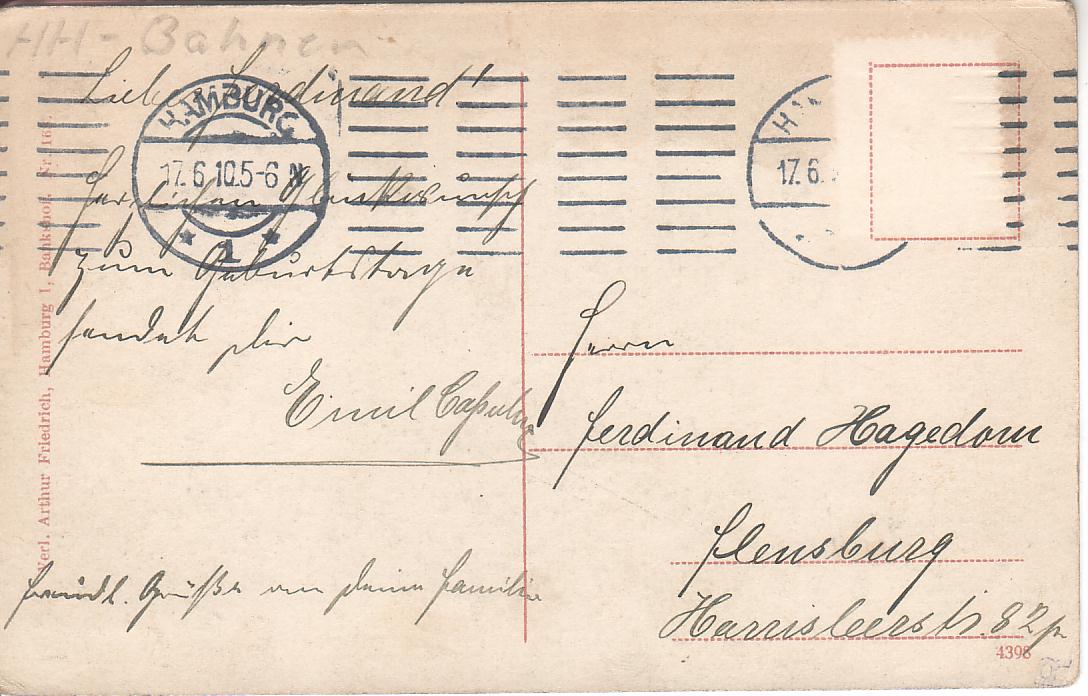 HH-Bahnen
Lieber Ferdinand!
Herzlichen Glückwunsch
zum Geburtstage
sendet Dir
Emil
freundl. Grüße an Deine Familie
HAMBURG
17.6.10.5-6 N
* 1 *
17.6.
Herrn
Ferdinand Hagedorn
Flensburg
Harrisleerstr. 82
4398
Verl. Arthur Friedrich, Hamburg 1, Bankshof. Nr. 16